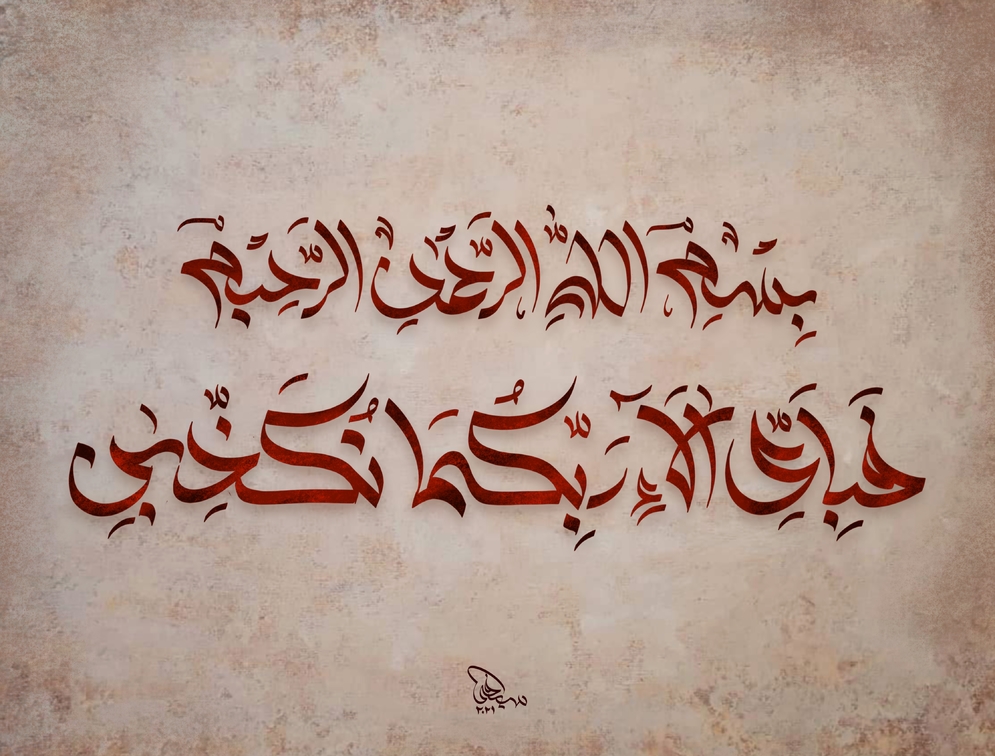 بِسْمِ اللّٰهِ الرَّحْمٰنِ الرَّحِيْمِ
فَبِاَيِّ اٰلَآءِ رَبِّكُمَا تُكَذِّبٰنِ
٢٠٢١